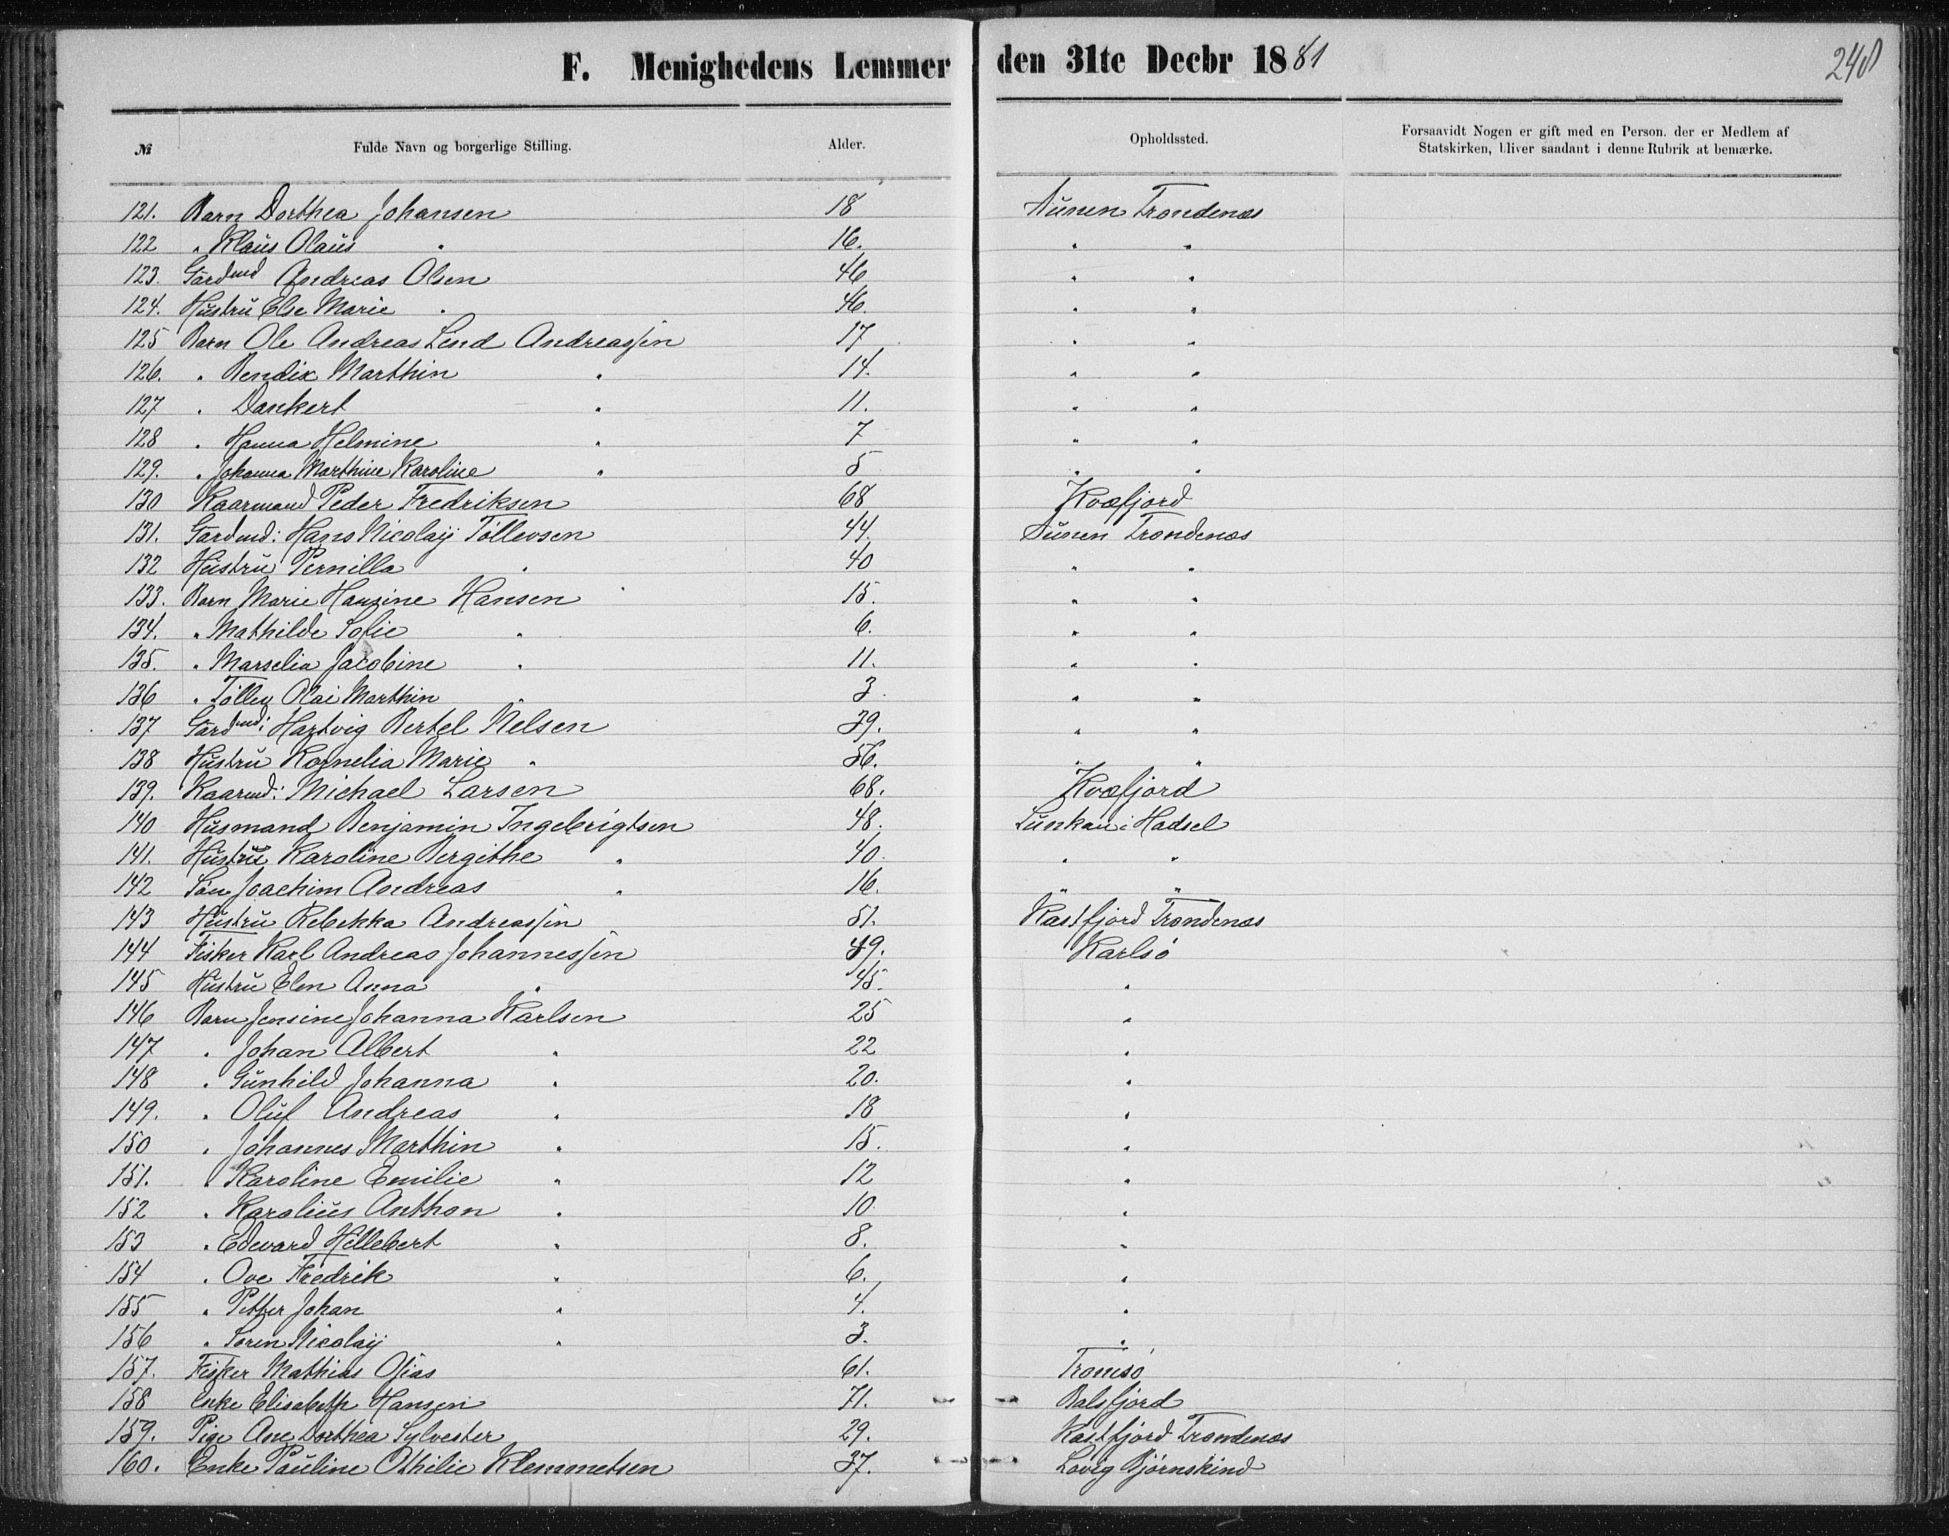 F. Menighedens Lemmer den 31te Decbr 1881 248
№ Fulde Navn og borgerlige Stilling. Alder. Opholdssted. Forsaavidt Nogen er gift med en Person, der er Medlem af
Statskirken, bliver saadant i denne Rubrik at bemærke.
121. Barn Dorthea Johansen 18 Aunen Trondenæs
122 " Klaus Olaus " 16. " "
123. Gardmd Andreas Olsen 46 " "
124. Hustru Else Marie " 46. " "
125 Barn Ole Andreas Lind Andreassen 17 " "
126. " Bendix Marthin " 14. " "
127 " Dankert " 11. " "
128 " Hanna Helmine " 7 " "
129. " Johanna Marthine Karoline " 5 " "
130 Kaarmand Peder Fredriksen 68 Kvæfjord
131. Gardmd: Hans Nicolaij Tøllevsen 44. Aunen Trondenæs
132 Hustru Pernilla " 40 " "
133. Barn Marie Hanzine Hansen 15. " "
134. " Mathilde Sofie " 6. " "
135. " Marselia Jacobine " 11. " "
136 " Tøllev Olai Marthin " 3. " "
137 Gardmd: Hartvig Bertel Nelsen 39. " "
138 Hustru Kornelia Marie " 56. " "
139. Kaarmd: Michael Larsen 68. Kvæfjord
140 Husmand Benjamin Ingebrigtsen 48. Lunkan i Hadsel
141. Hustru Karoline Bergithe " 40. " "
142 Søn Joachim Andreas " 16. " "
143 Hustru Rebekka Andreassen 51. Kastfjord Trondenæs
144 Fisker Karl Andreas Johannessen 49. Karlsø
145 Hustru Elen Anna " 45. "
146 Barn Jensine Johanna Karlsen 25 "
147 " Johan Albert " 22 "
148 " Gunhild Johanna " 20. "
149. " Oluf Andreas " 18 "
150 " Johannes Marthin " 15. "
151. " Karoline Emilie " 12 "
152 " Karolius Anthon " 10. "
153 " Edevard Hellebert " 8. "
154 " Ove Fredrik " 6. "
155 " Petter Johan " 4. "
156 " Søren Nicolaij " 3. "
157. Fisker Mathias Ojias 61. Tromsø
158 Enke Elisabeth Hansen 71. Balsfjord
159. Pige Ane Dorthea Sylvester 29. Kastfjord Trondenæs
160. Enke Pauline Othilie Klemmetsen 37. Lovig Bjørnskind